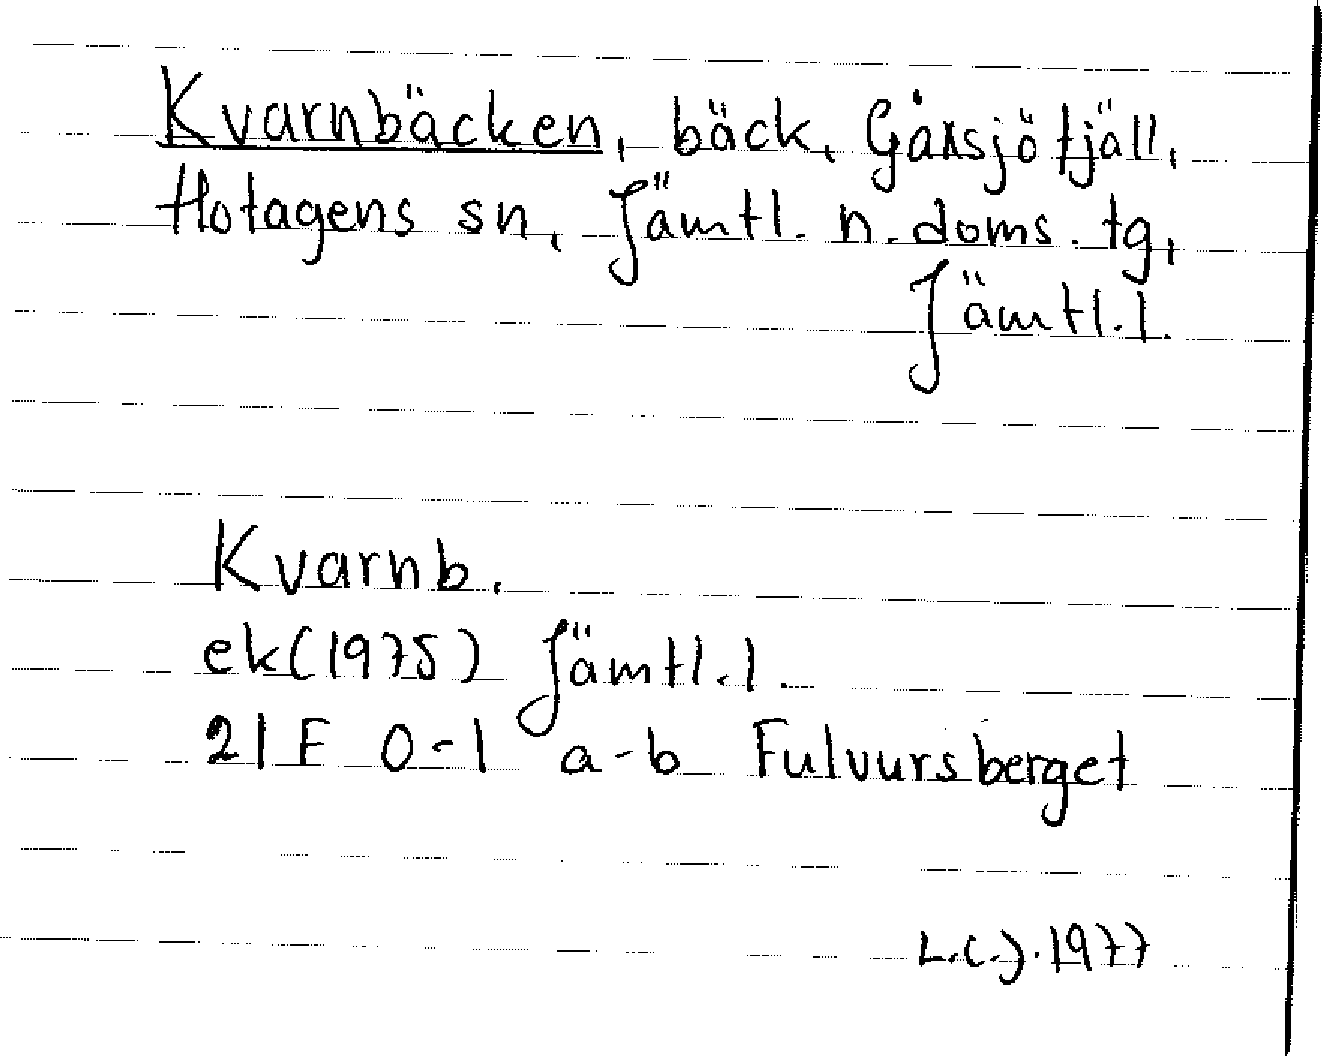 Kvarnbäcken, bäck, Gåxsjöfjäll,
Hotagens sn, Jämtl. n. doms. tg,
Jämtl. l.
Kvarnb.
ek (1975) Jämtl. l.
21 E 0-1 a-b Fuluursberget
L.C.J. 1977